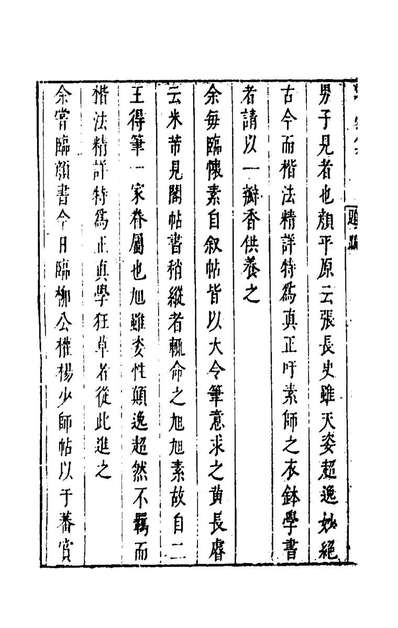 題跋
男子見者也顏平原云張長史雖天姿超逸妙絕
古今而楷法精詳特為真正吁素師之衣鉢學書
者請以一瓣香供養之
余每臨懷素自叙帖皆以大令筆意求之黄長睿
云米芾見閣帖書稍縱者輒命之旭旭素故自二
王得筆一家眷屬也旭雖姿性顛逸超然不羈而
楷法精詳特為正真學狂草者從此進之
余嘗臨顏書今日臨柳公權楊少師帖以于蕃賞